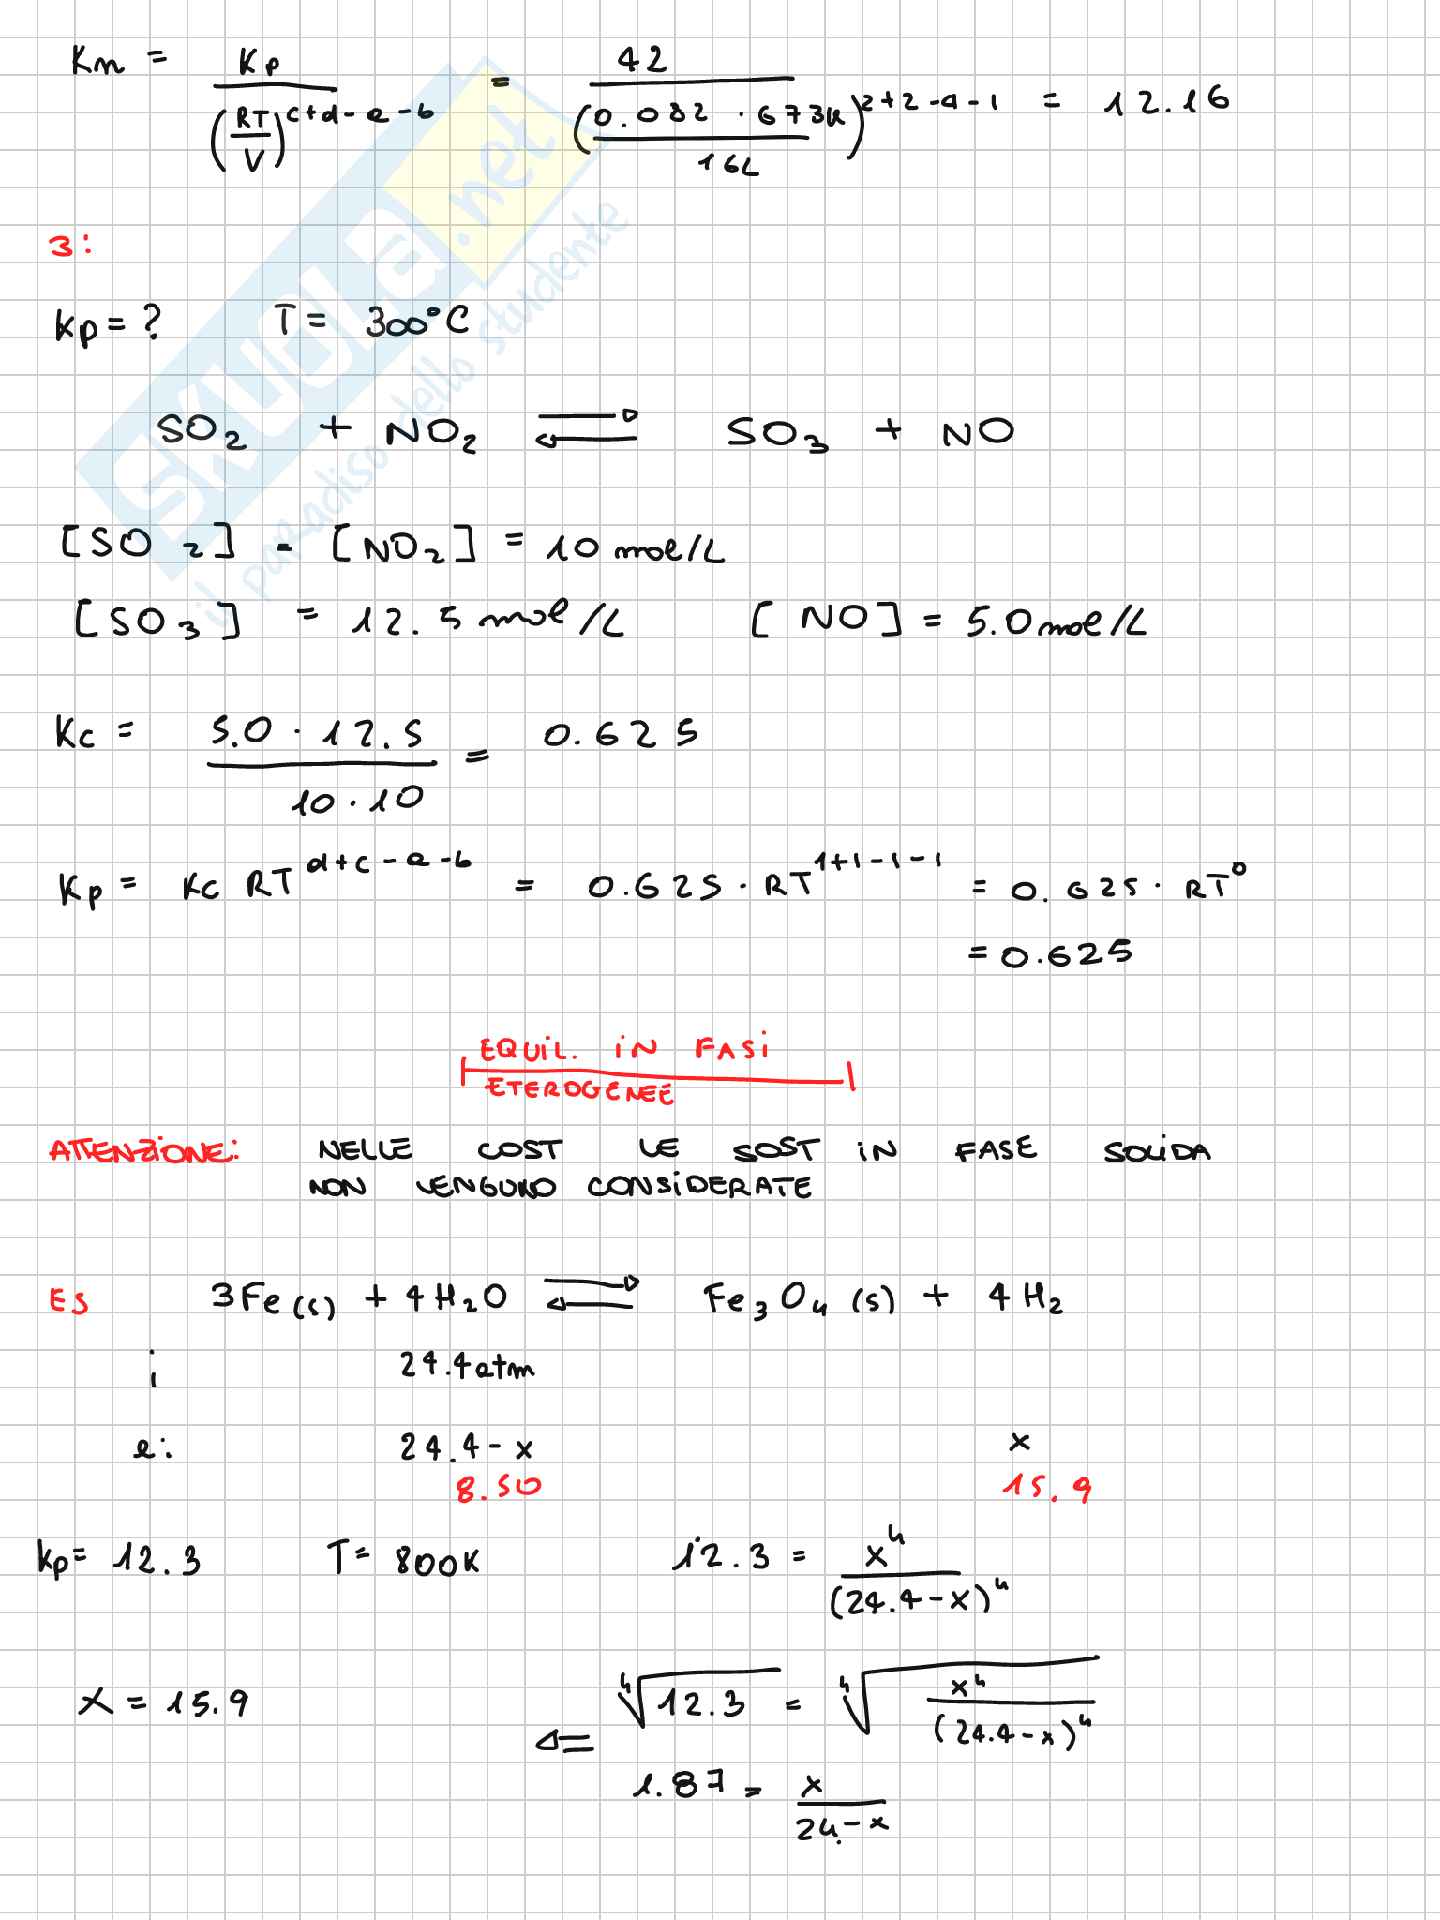 Kn = Kp / (RT/V)^c+d-a-b = 42 / (0.082 · 673K / 16L)^2+2-4-1 = 12.16
3:
Kp = ? T = 300°C
SO2 + NO2 ⇌ SO3 + NO
[SO2] - [NO2] = 10 mol/L
[SO3] = 12.5 mol/L [NO] = 5.0 mol/L
Kc = 5.0 · 12.5 / 10 · 10 = 0.625
Kp = Kc RT^d+c-a-b = 0.625 · RT^1+1-1-1 = 0.625 · RT^0
= 0.625
EQUIL. IN FASI
ETEROGENEE
ATTENZIONE: NELLE COST LE SOST IN FASE SOLIDA
NON VENGONO CONSIDERATE
ES 3Fe(s) + 4H2O ⇌ Fe3O4(s) + 4H2
i 24.4 atm
e: 24.4 - x x
8.50 15.9
Kp = 12.3 T = 800K 12.3 = x^4 / (24.4 - x)^4
x = 15.9 ⇐ ∜12.3 = ∜(x^4 / (24.4 - x)^4)
1.87 = x / 24. - x
SKUOLA.net
il paradiso dello studente